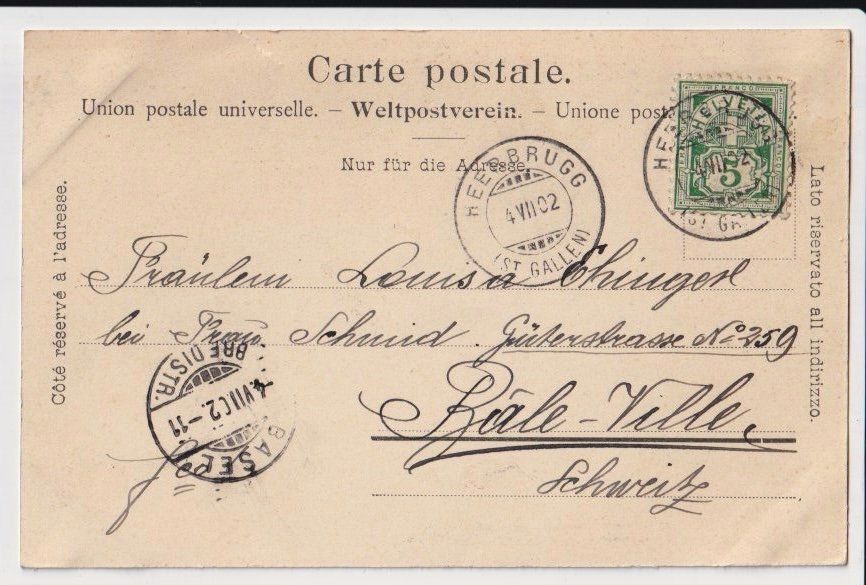 Carte postale.
Union postale universelle. – Weltpostverein. – Unione post
Nur für die Adresse.
Côté réservé à l'adresse.
Lato riservato all indirizzo.
HELVETIA
FRANCO
5
HEERBRUGG
4 VII 02
(ST GALLEN)
HEERBRUGG
4 VII 02
(ST GALLEN)
Fräulein Louisa
bei Frau. Schmid. Güterstrasse No 259
Bâle-Ville.
Schweiz
BASEL
4.VII.02.-11
BRF.DISTR.